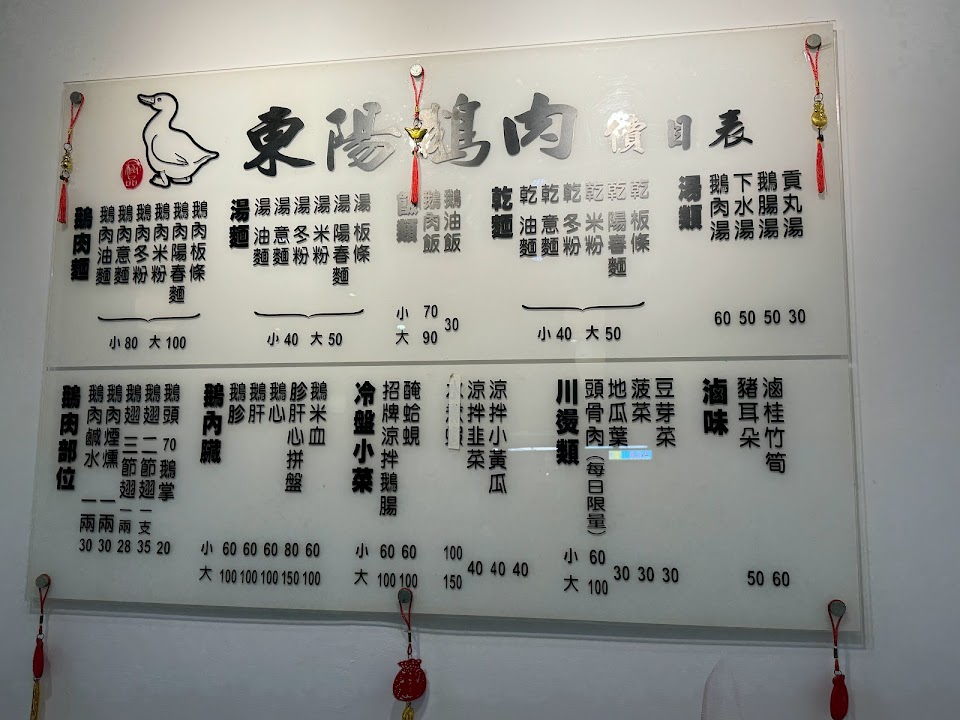 東陽鵝肉 價目表
鵝肉麵
鵝肉油麵
鵝肉意麵
鵝肉冬粉
鵝肉米粉
鵝肉陽春麵
鵝肉板條
小80 大100
湯麵
湯 油麵
湯 意麵
湯 冬粉
湯 米粉
湯 陽春麵
湯 板條
小40 大50
飯類
鵝肉飯
鵝油飯
小 70
大 90
30
乾麵
乾 油麵
乾 意麵
乾 冬粉
乾 米粉
乾 陽春麵
乾 板條
小40 大50
湯類
鵝肉湯
下水湯
鵝腸湯
貢丸湯
60 50 50 30
鵝肉部位
鵝肉鹹水 一兩 30
鵝肉煙燻 一兩 30
鵝翅 三節翅 一兩 28
鵝翅 二節翅 一支 35
鵝頭 70 鵝掌 20
鵝內臟
鵝胗
鵝肝
鵝心
胗肝心拼盤
鵝米血
小 60 60 60 80 60
大 100 100 100 150 100
冷盤小菜
招牌涼拌鵝腸
醃蛤蜆
涼拌韭菜
涼拌小黃瓜
小 60 60 100
大 100 100 150
40 40 40
川燙類
頭骨肉(每日限量)
地瓜葉
菠菜
豆芽菜
小 60
大 100
30 30 30
滷味
豬耳朵
滷桂竹筍
50 60